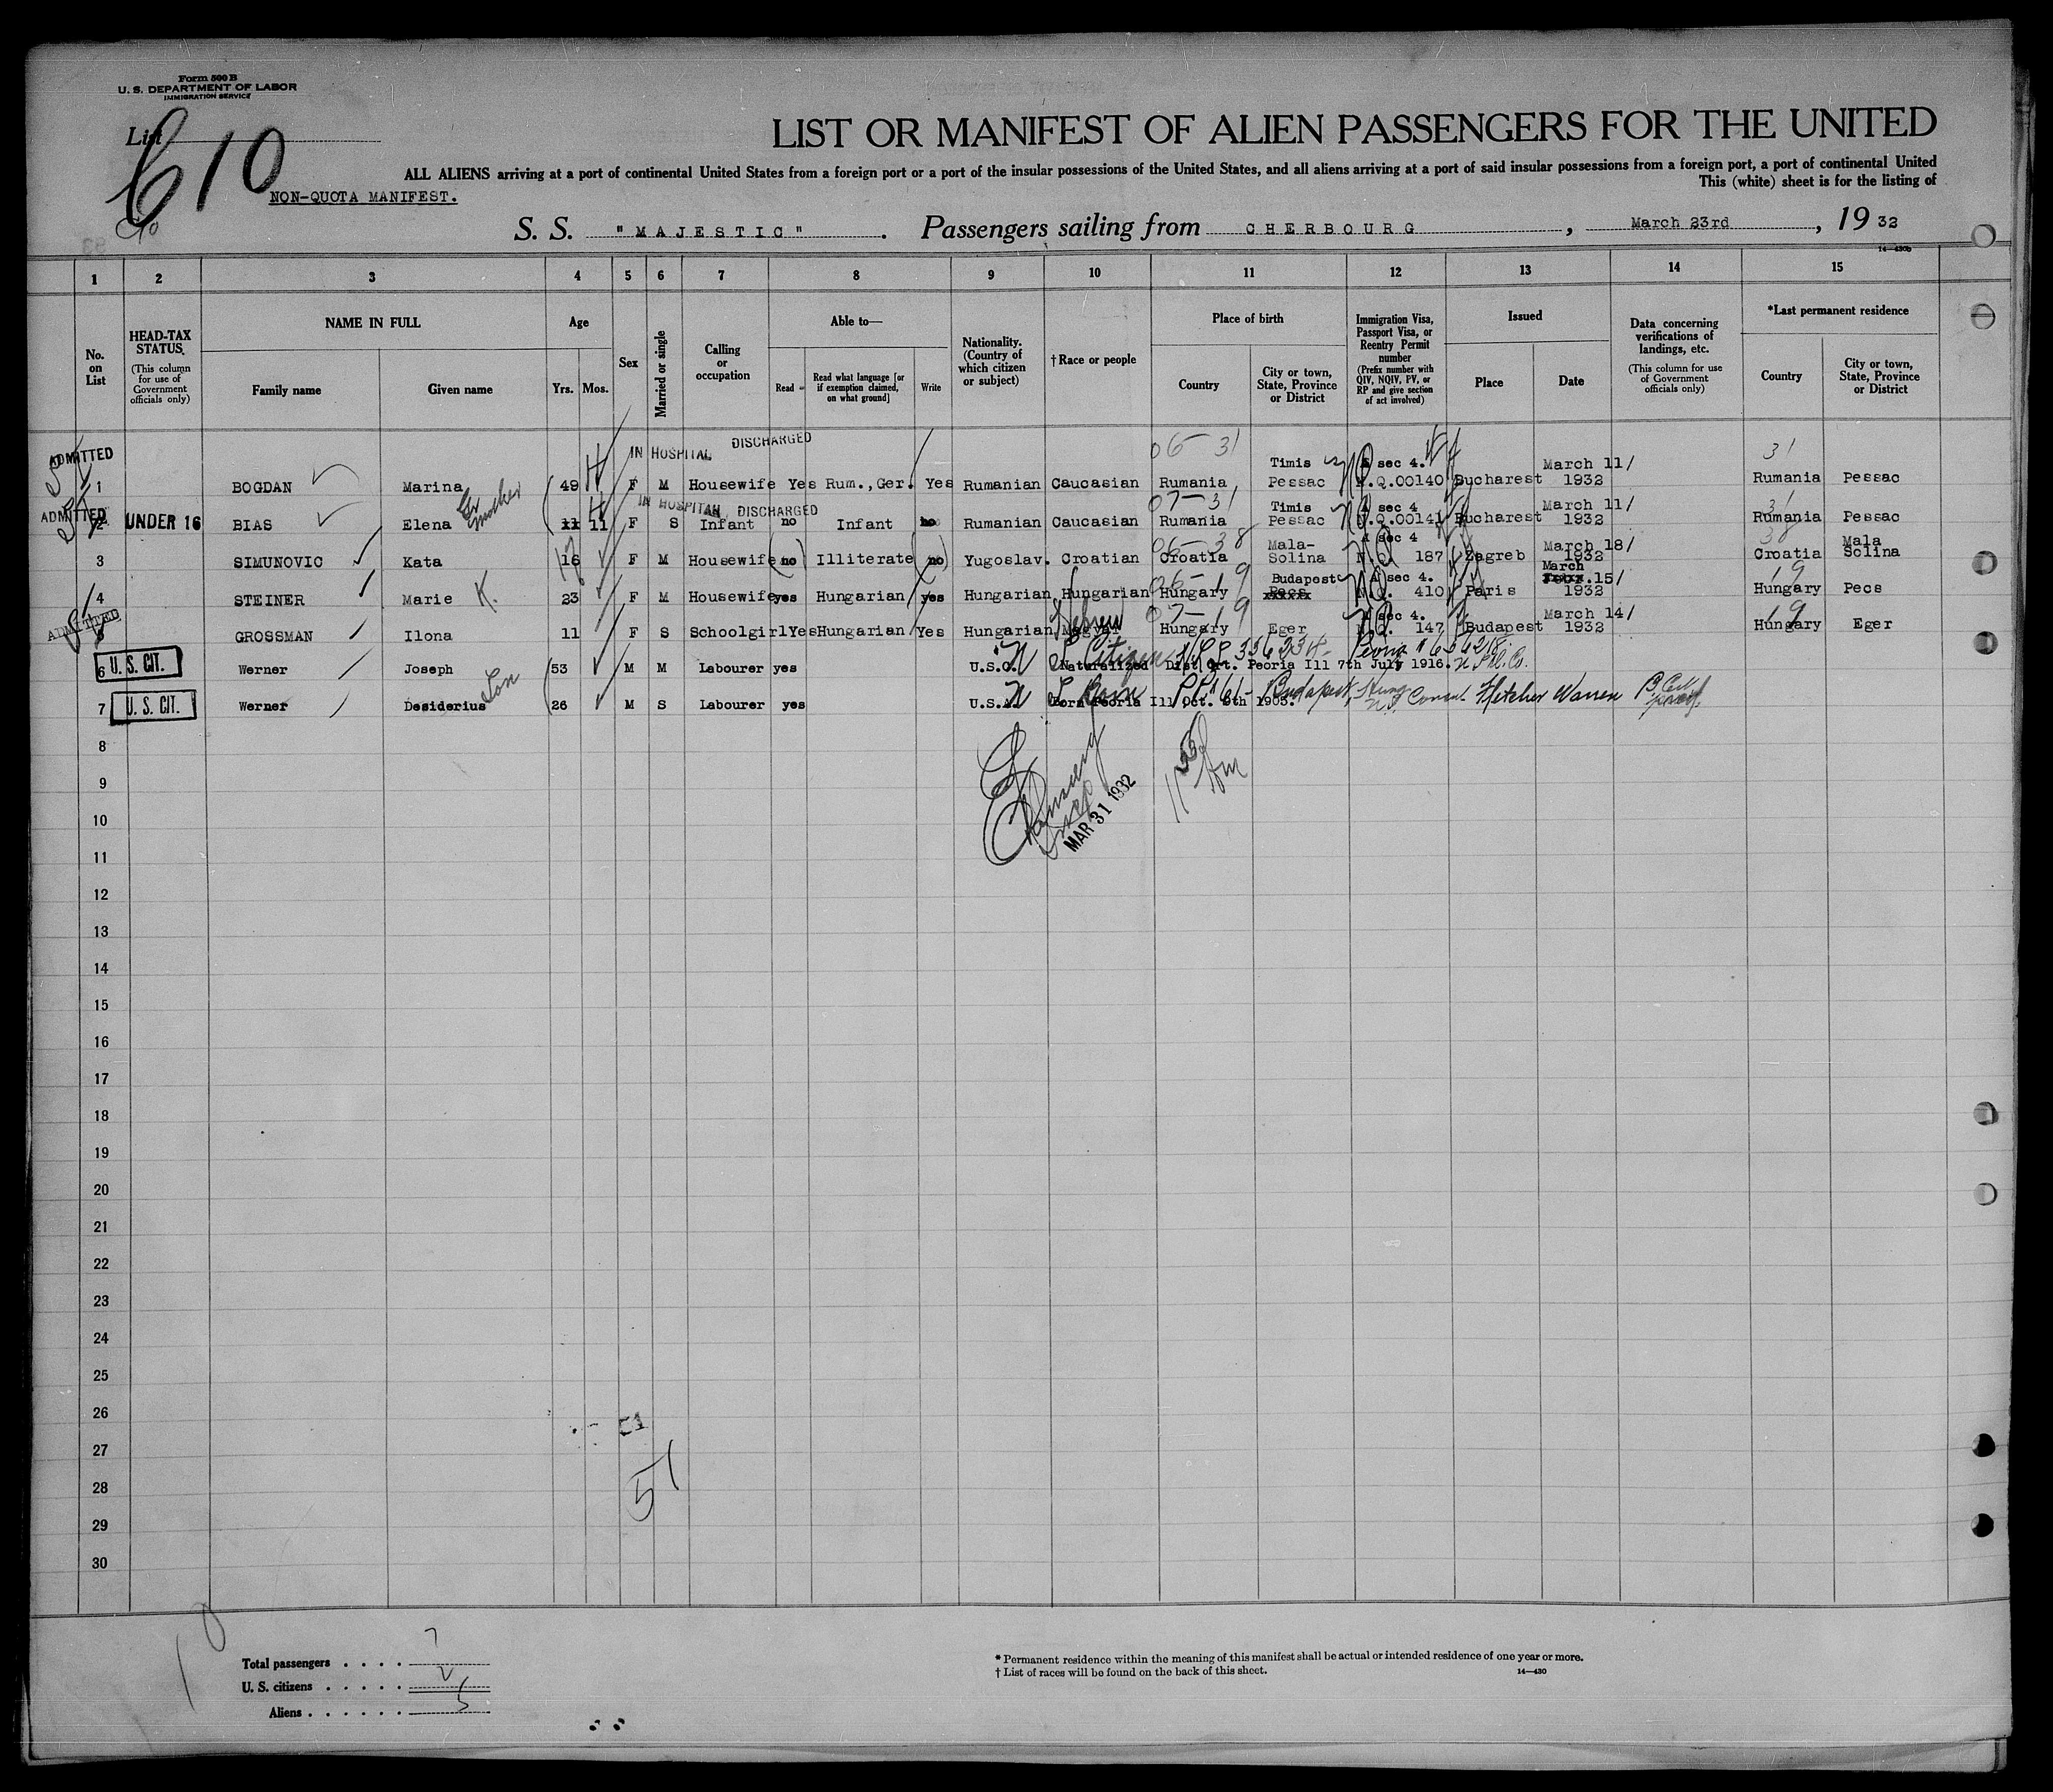 Form 500 B
U. S. DEPARTMENT OF LABOR
IMMIGRATION SERVICE
List
610
LIST OR MANIFEST OF ALIEN PASSENGERS FOR THE UNITED
ALL ALIENS arriving at a port of continental United States from a foreign port or a port of the insular possessions of the United States, and all aliens arriving at a port of said insular possessions from a foreign port, a port of continental United
This (white) sheet is for the listing of
NON-QUOTA MANIFEST.
S. S. "MAJESTIC". Passengers sailing from CHERBOURG, March 23rd, 19 32
14—430b
1 2 3 4 5 6 7 8 9 10 11 12 13 14 15
No. on List
HEAD-TAX STATUS (This column for use of Government officials only)
NAME IN FULL
Family name Given name
Age
Yrs. Mos.
Sex
Married or single
Calling or occupation
Able to—
Read Read what language [or if exemption claimed, on what ground] Write
Nationality. (Country of which citizen or subject)
†Race or people
Place of birth
Country City or town, State, Province or District
Immigration Visa, Passport Visa, or Reentry Permit number (Prefix number with QIV, NQIV, PV, or RP and give section of act involved)
Issued
Place Date
Data concerning verifications of landings, etc. (This column for use of Government officials only)
*Last permanent residence
Country City or town, State, Province or District
ADMITTED IN HOSPITAL DISCHARGED 06-31 31
1 BOGDAN Marina Gr mother 49 F M Housewife Yes Rum., Ger. Yes Rumanian Caucasian Rumania Timis Pessac sec 4. N.Q.00140 Bucharest March 11/ 1932 Rumania Pessac
ADMITTED IN HOSPITAL DISCHARGED 07-31 31
2 UNDER 16 BIAS Elena 11 11 F S Infant no Infant no Rumanian Caucasian Rumania Timis Pessac sec 4 N.Q.00141 Bucharest March 11/ 1932 Rumania Pessac
06-38 38
3 SIMUNOVIC Kata 16 17 F M Housewife no Illiterate no Yugoslav. Croatian Croatia Mala-Solina sec 4 N.Q. 187 Zagreb March 18/ 1932 Croatia Mala Solina
06-19 19
4 STEINER Marie K. 23 F M Housewife yes Hungarian yes Hungarian Hungarian Hungary Budapest sec 4. N.Q. 410 Paris March 15/ 1932 Hungary Pecs
ADMITTED Hebrew 07-19 19
5 GROSSMAN Ilona 11 F S Schoolgirl Yes Hungarian Yes Hungarian Magyar Hungary Eger sec 4. N.Q. 147 Budapest March 14/ 1932 Hungary Eger
6 U. S. CIT. Werner Joseph 53 M M Labourer yes U.S.C. Naturalized Dist. Crt. Peoria Ill 7th July 1916.
7 U. S. CIT. Werner Desiderius Son 26 M S Labourer yes U.S.A. Born Peoria Ill Oct. 9th 1905. Budapest, Hung Consul Fletcher Warren
8
9
MAR 31 1932
10
11
12
13
14
15
16
17
18
19
20
21
22
23
24
25
26
27
28
51
29
30
10
Total passengers . . . . 7
U. S. citizens . . . . . 2
Aliens . . . . . . 5
* Permanent residence within the meaning of this manifest shall be actual or intended residence of one year or more.
† List of races will be found on the back of this sheet.
14—430